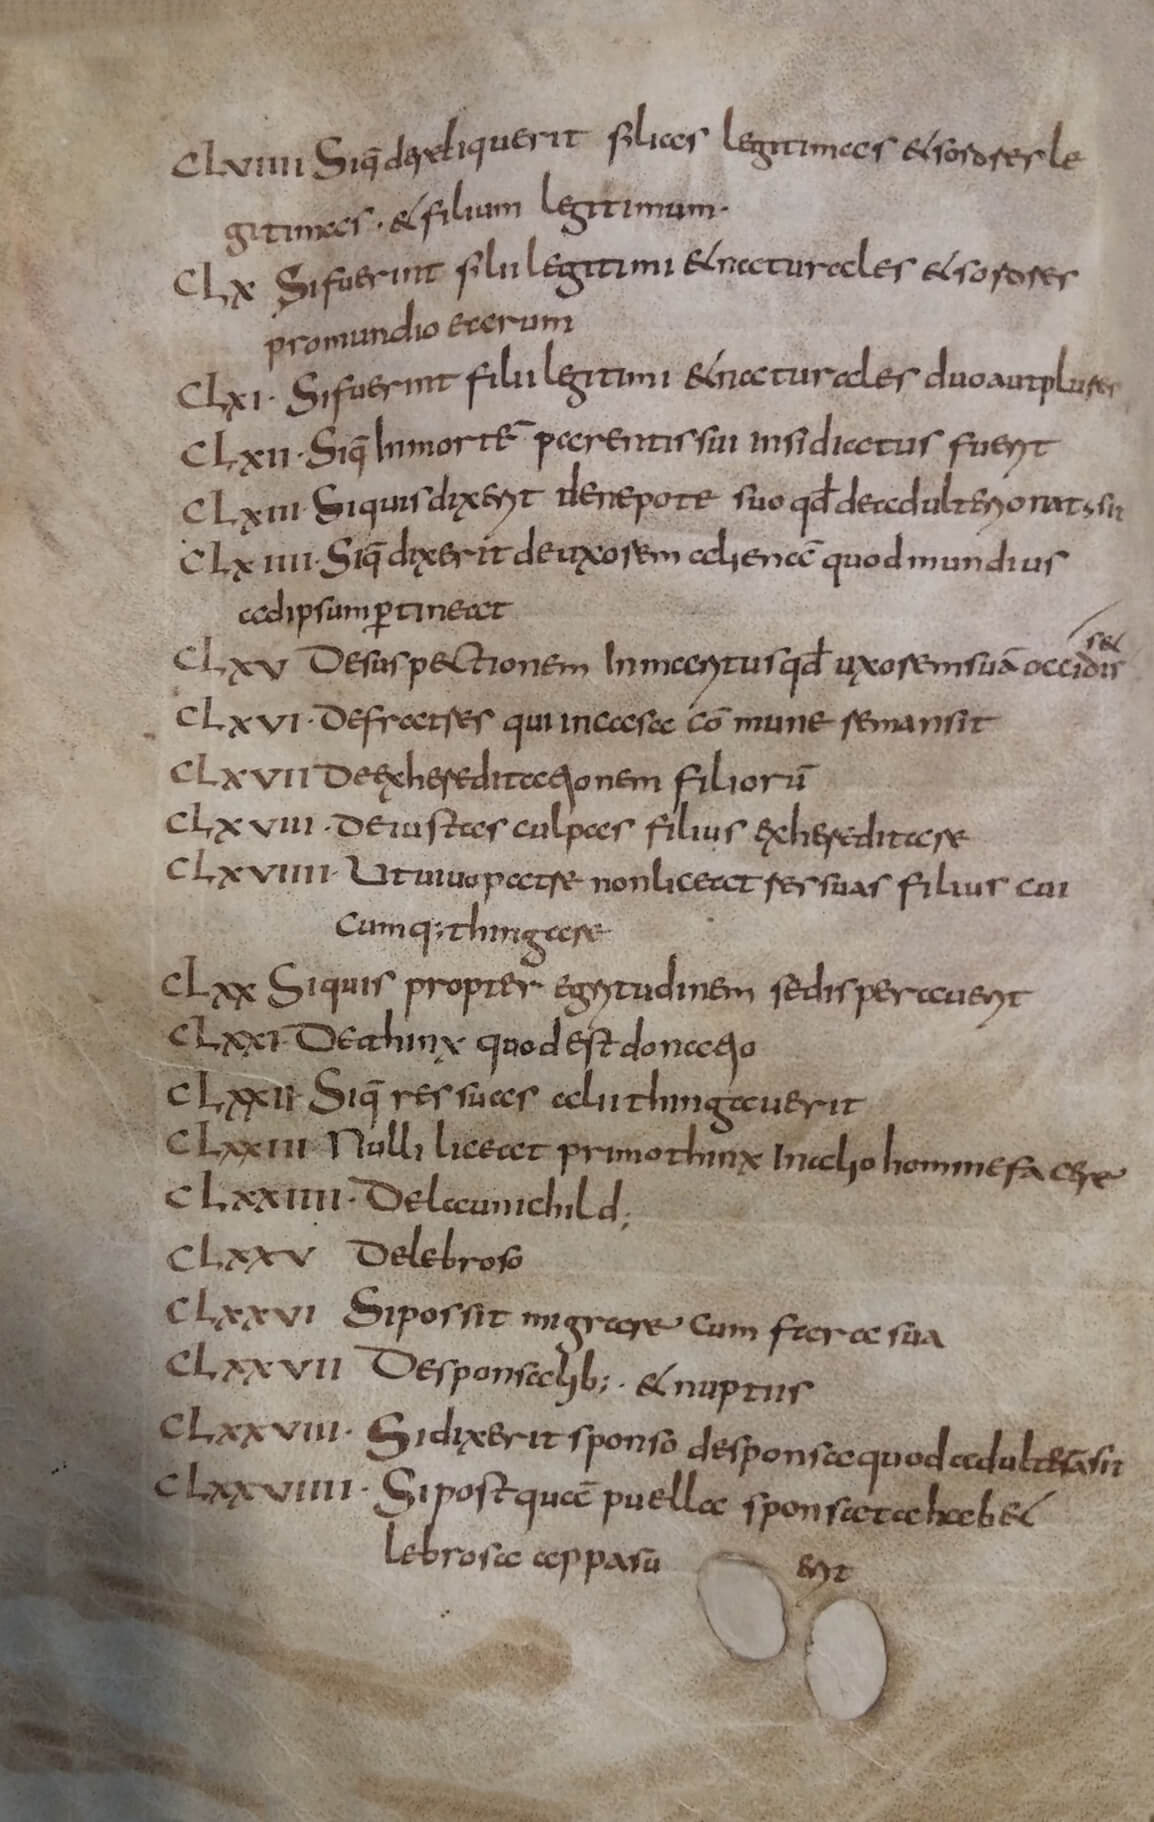 CLVIIII Siq̄ dereliquerit filias legitimas & sorores le
gitimas · & filium legitimum ·
CLX Si fuerint filii legitimi & naturales & sorores
pro mundio earum
CLXI · Si fuerint filii legitimi & naturales duo aut plures
CLXII · Siq̄ In morte͞ parentis sui insidiatus fuerit
CLXIII · Si quis dixerit de nepote suo qđ de adulterio nat; sit
CLXIIII · Siq̄ dixerit de uxorem alienā quod mundius
ad ipsum ꝑtineat
CLXV De suspectionem In maritus qđ uxorem suā occidis
s&
CLXVI · De fratres qui in casa cōmune remansit
CLXVII De exhereditationem filiorū
CLXVIII · De iustas culpas filius exhereditare
CLXVIIII · Ut uiuo patre non liceat res suas filius cui
cumq; thingare
CLXX Si quis propter egritudinem se disperauerit
CLXXI De athinx quod est donatio
CLXXII Siq̄ res suas alii thingauerit
CLXXIII Nulli liceat primo thinx In alio homine facere
CLXXIIII · De launichild;
CLXXV De lebroso
CLXXVI Si possit migrare cum fara sua
CLXXVII De sponsalib; · & nuptus
CLXXVIII · Si dixerit sponso de sponsa quod adulterā sit
CLXXVIIII · Si postquā puella sponsata hab&
lebrosa apparu erit